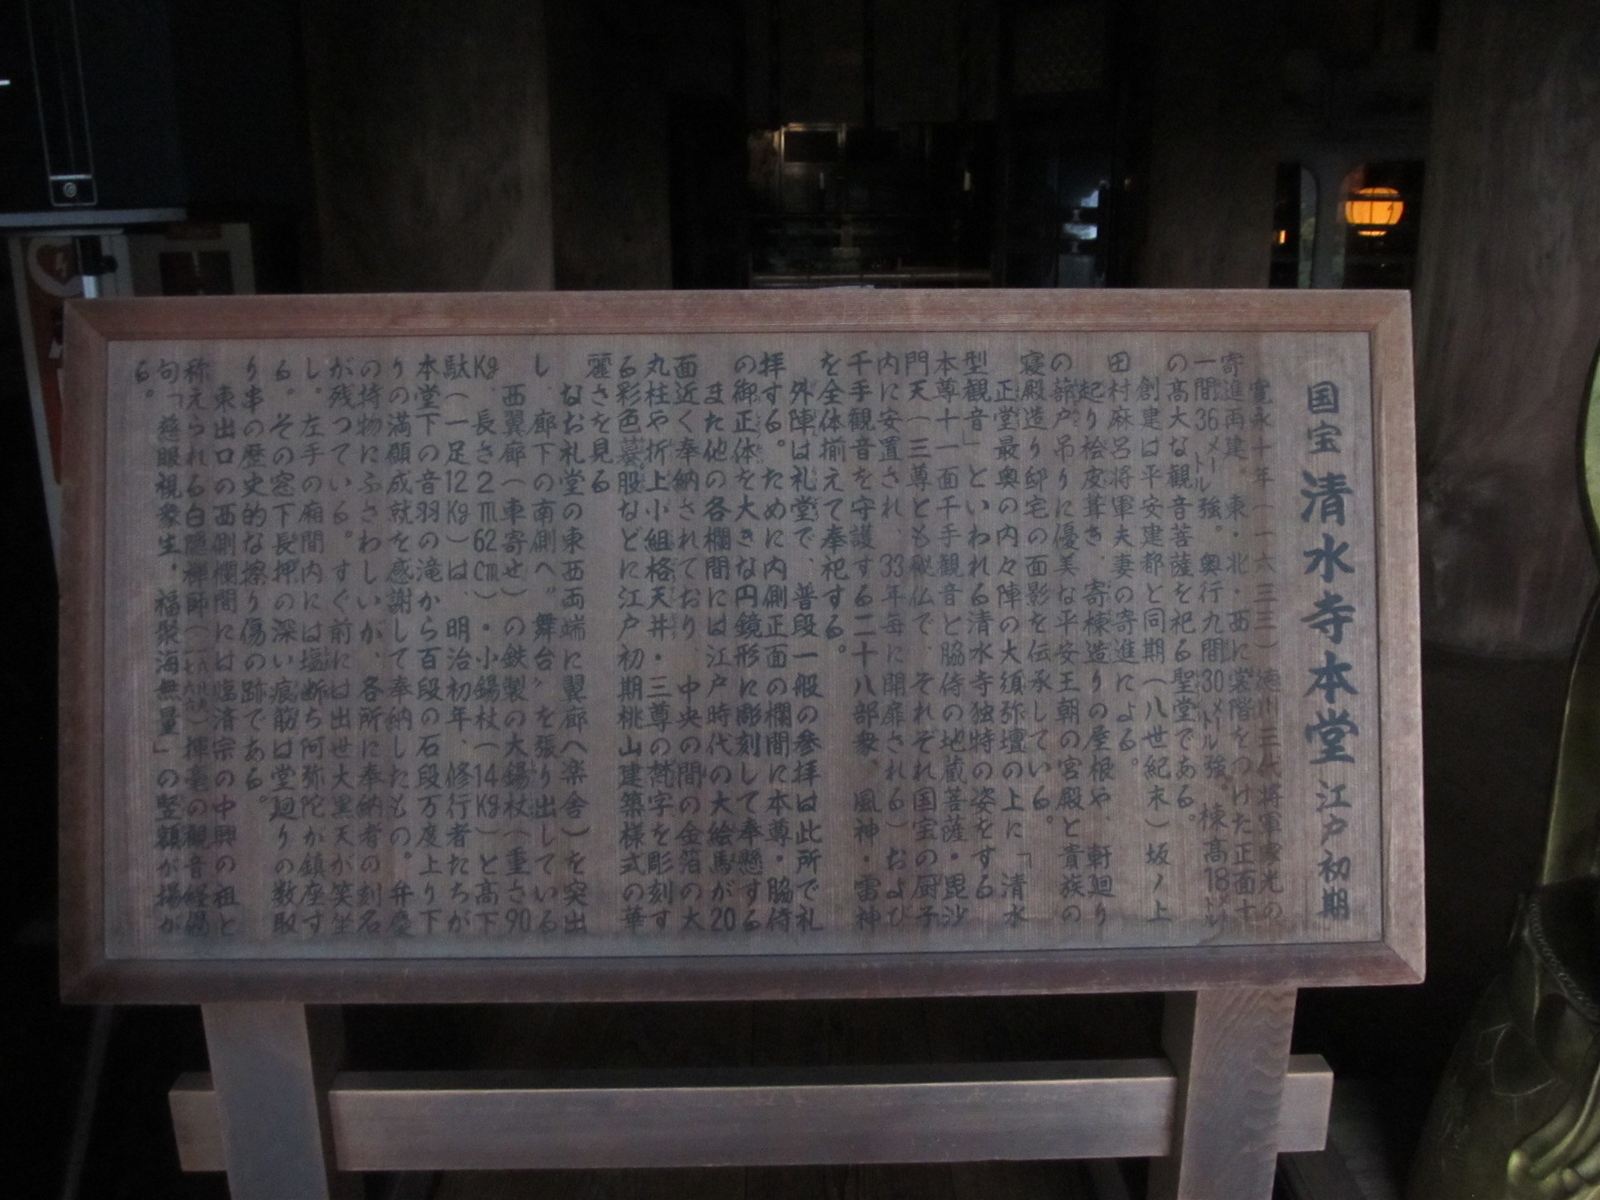 国宝 清水寺本堂 江戸初期
寛永十年(一六三三)徳川三代将軍家光の
寄進再建。東・北・西に裳階をつけた正面十
一間36メートル強。奥行九間30メートル強。棟高18メートル
の高大な観音菩薩を祀る聖堂である。
創建は平安建都と同期(八世紀末)坂ノ上
田村麻呂将軍夫妻の寄進による。
起り桧皮葺き、寄棟造りの屋根や、軒廻り
の蔀戸吊りに優美な平安王朝の宮殿と貴族の
寝殿造り邸宅の面影を伝承している。
正堂最奥の内々陣の大須弥壇の上に「清水
型観音」といわれる清水寺独特の姿をする
本尊十一面千手観音と脇侍の地蔵菩薩・毘沙
門天(三尊とも秘仏で、それぞれ国宝の厨子
内に安置され、33年毎に開扉される)および
千手観音を守護する二十八部衆、風神・雷神
を全体揃えて奉祀する。
外陣は礼堂で、普段一般の参拝は此所で礼
拝する。ために内側正面の欄間に本尊・脇侍
の御正体を大きな円鏡形に彫刻して奉懸する
また他の各欄間には江戸時代の大絵馬が20
面近く奉納されており、中央の間の金箔の大
丸柱や折上小組格天井・三尊の梵字を彫刻す
る彩色蟇股などに江戸初期桃山建築様式の華
麗さを見る
なお礼堂の東西両端に翼廊(楽舎)を突出
し、廊下の南側へ〝舞台〟を張り出している
西翼廊(車寄せ)の鉄製の大錫杖(重さ90
Kg、長さ2m62cm)・小錫杖(14Kg)と高下
駄(一足12Kg)は、明治初年、修行者たちが
本堂下の音羽の滝から百段の石段万度上り下
りの満願成就を感謝して奉納したもの。弁慶
の持物にふさわしいが、各所に奉納者の刻名
が残っている。すぐ前には出世大黒天が笑坐
し、左手の廂間内には塩断ち阿弥陀が鎮座す
る。その窓下長押の深い痕筋は堂廻りの数取
り串の歴史的な擦り傷の跡である。
東出口の西側欄間には臨済宗の中興の祖と
称えられる白隠禅師()揮毫の観音経偈
句「慈眼視衆生、福聚海無量」の竪額が揚が
る。